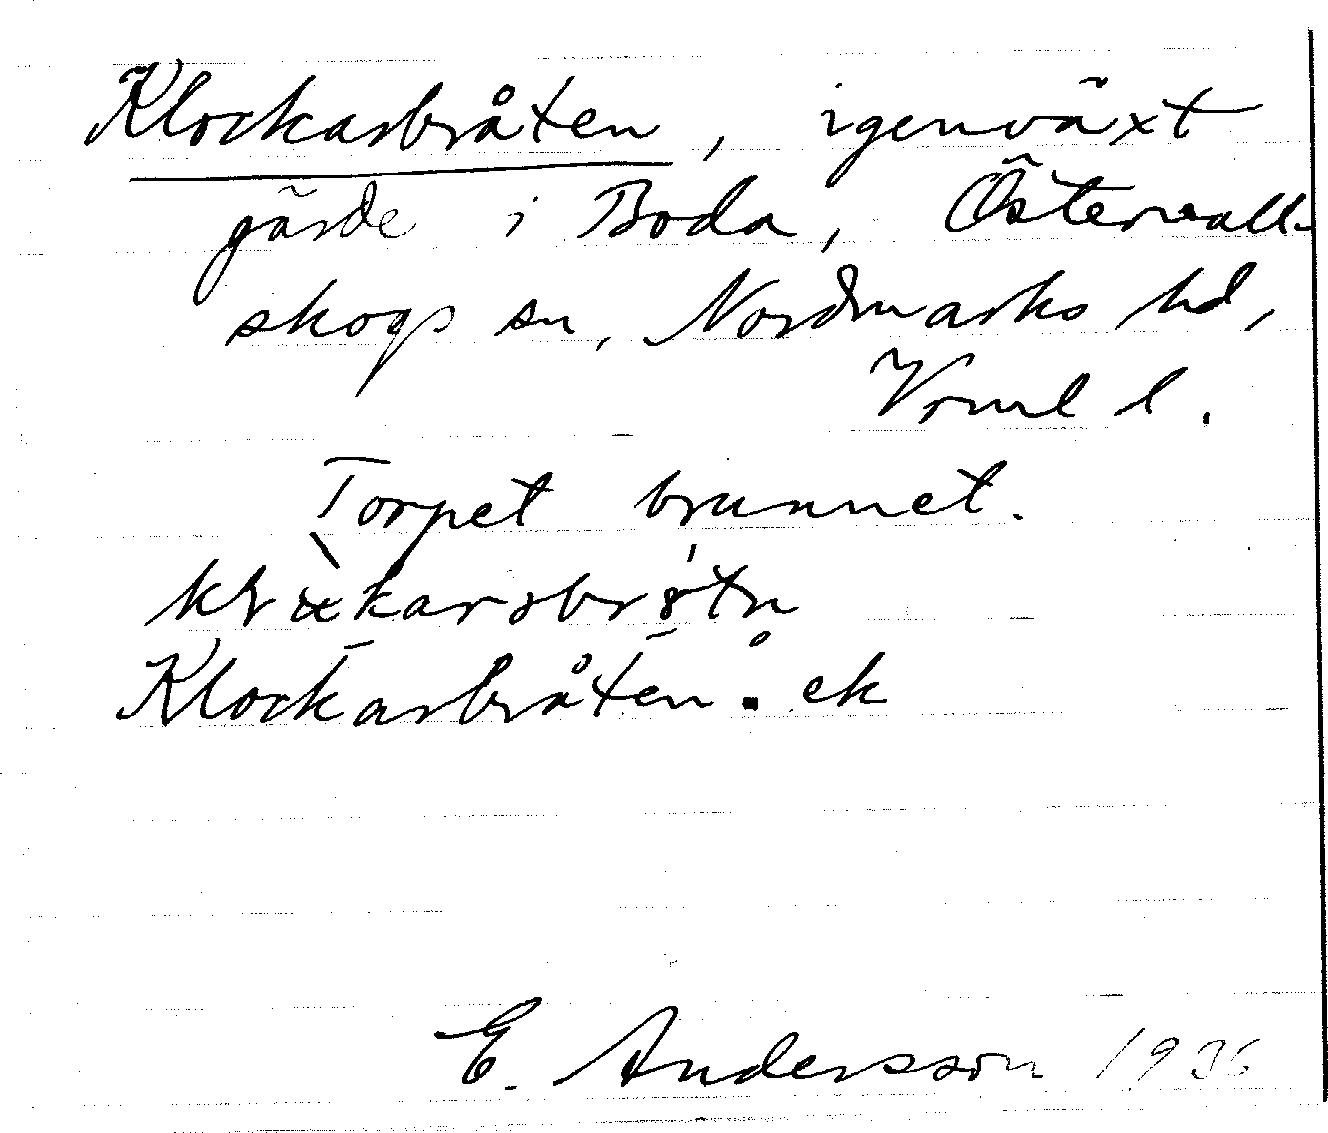 Klockarbråten, igenväxt
gärde i Boda, Östervall-
skogs sn, Nordmarks hd,
Vrml l.
Torpet brunnet.
Klockarbråten. ek
E. Andersson 1936